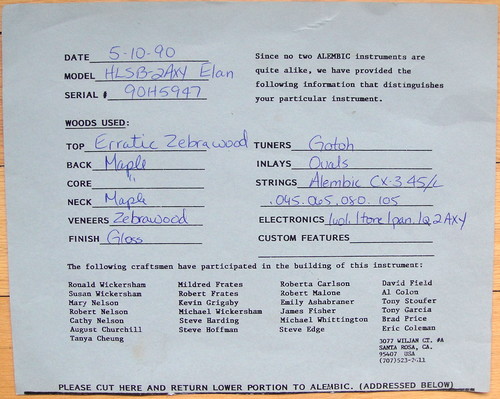 DATE 5-10-90
MODEL HLSB-2AXY Elan
SERIAL # 90H5947
Since no two ALEMBIC instruments are
quite alike, we have provided the
following information that distinguishes
your particular instrument.
WOODS USED:
TOP Erratic Zebrawood
BACK Maple
CORE
NECK Maple
VENEERS Zebrawood
FINISH Gloss
TUNERS Gotoh
INLAYS Ovals
STRINGS Alembic CX-3 45/L
.045 .065 .080 .105
ELECTRONICS 1vol 1tone 1pan 1Q 2 AXY
CUSTOM FEATURES
The following craftsmen have participated in the building of this instrument:
Ronald Wickersham
Susan Wickersham
Mary Nelson
Robert Nelson
Cathy Nelson
August Churchill
Tanya Cheung
Mildred Frates
Robert Frates
Kevin Grigsby
Michael Wickersham
Steve Harding
Steve Hoffman
Roberta Carlson
Robert Malone
Emily Ashabraner
James Fisher
Michael Whittington
Steve Edge
David Field
Al Colon
Tony Stoufer
Tony Garcia
Brad Price
Eric Coleman
3077 WILJAN CT. #A
SANTA ROSA, CA.
95407 USA
(707)523-2611
PLEASE CUT HERE AND RETURN LOWER PORTION TO ALEMBIC. (ADDRESSED BELOW)